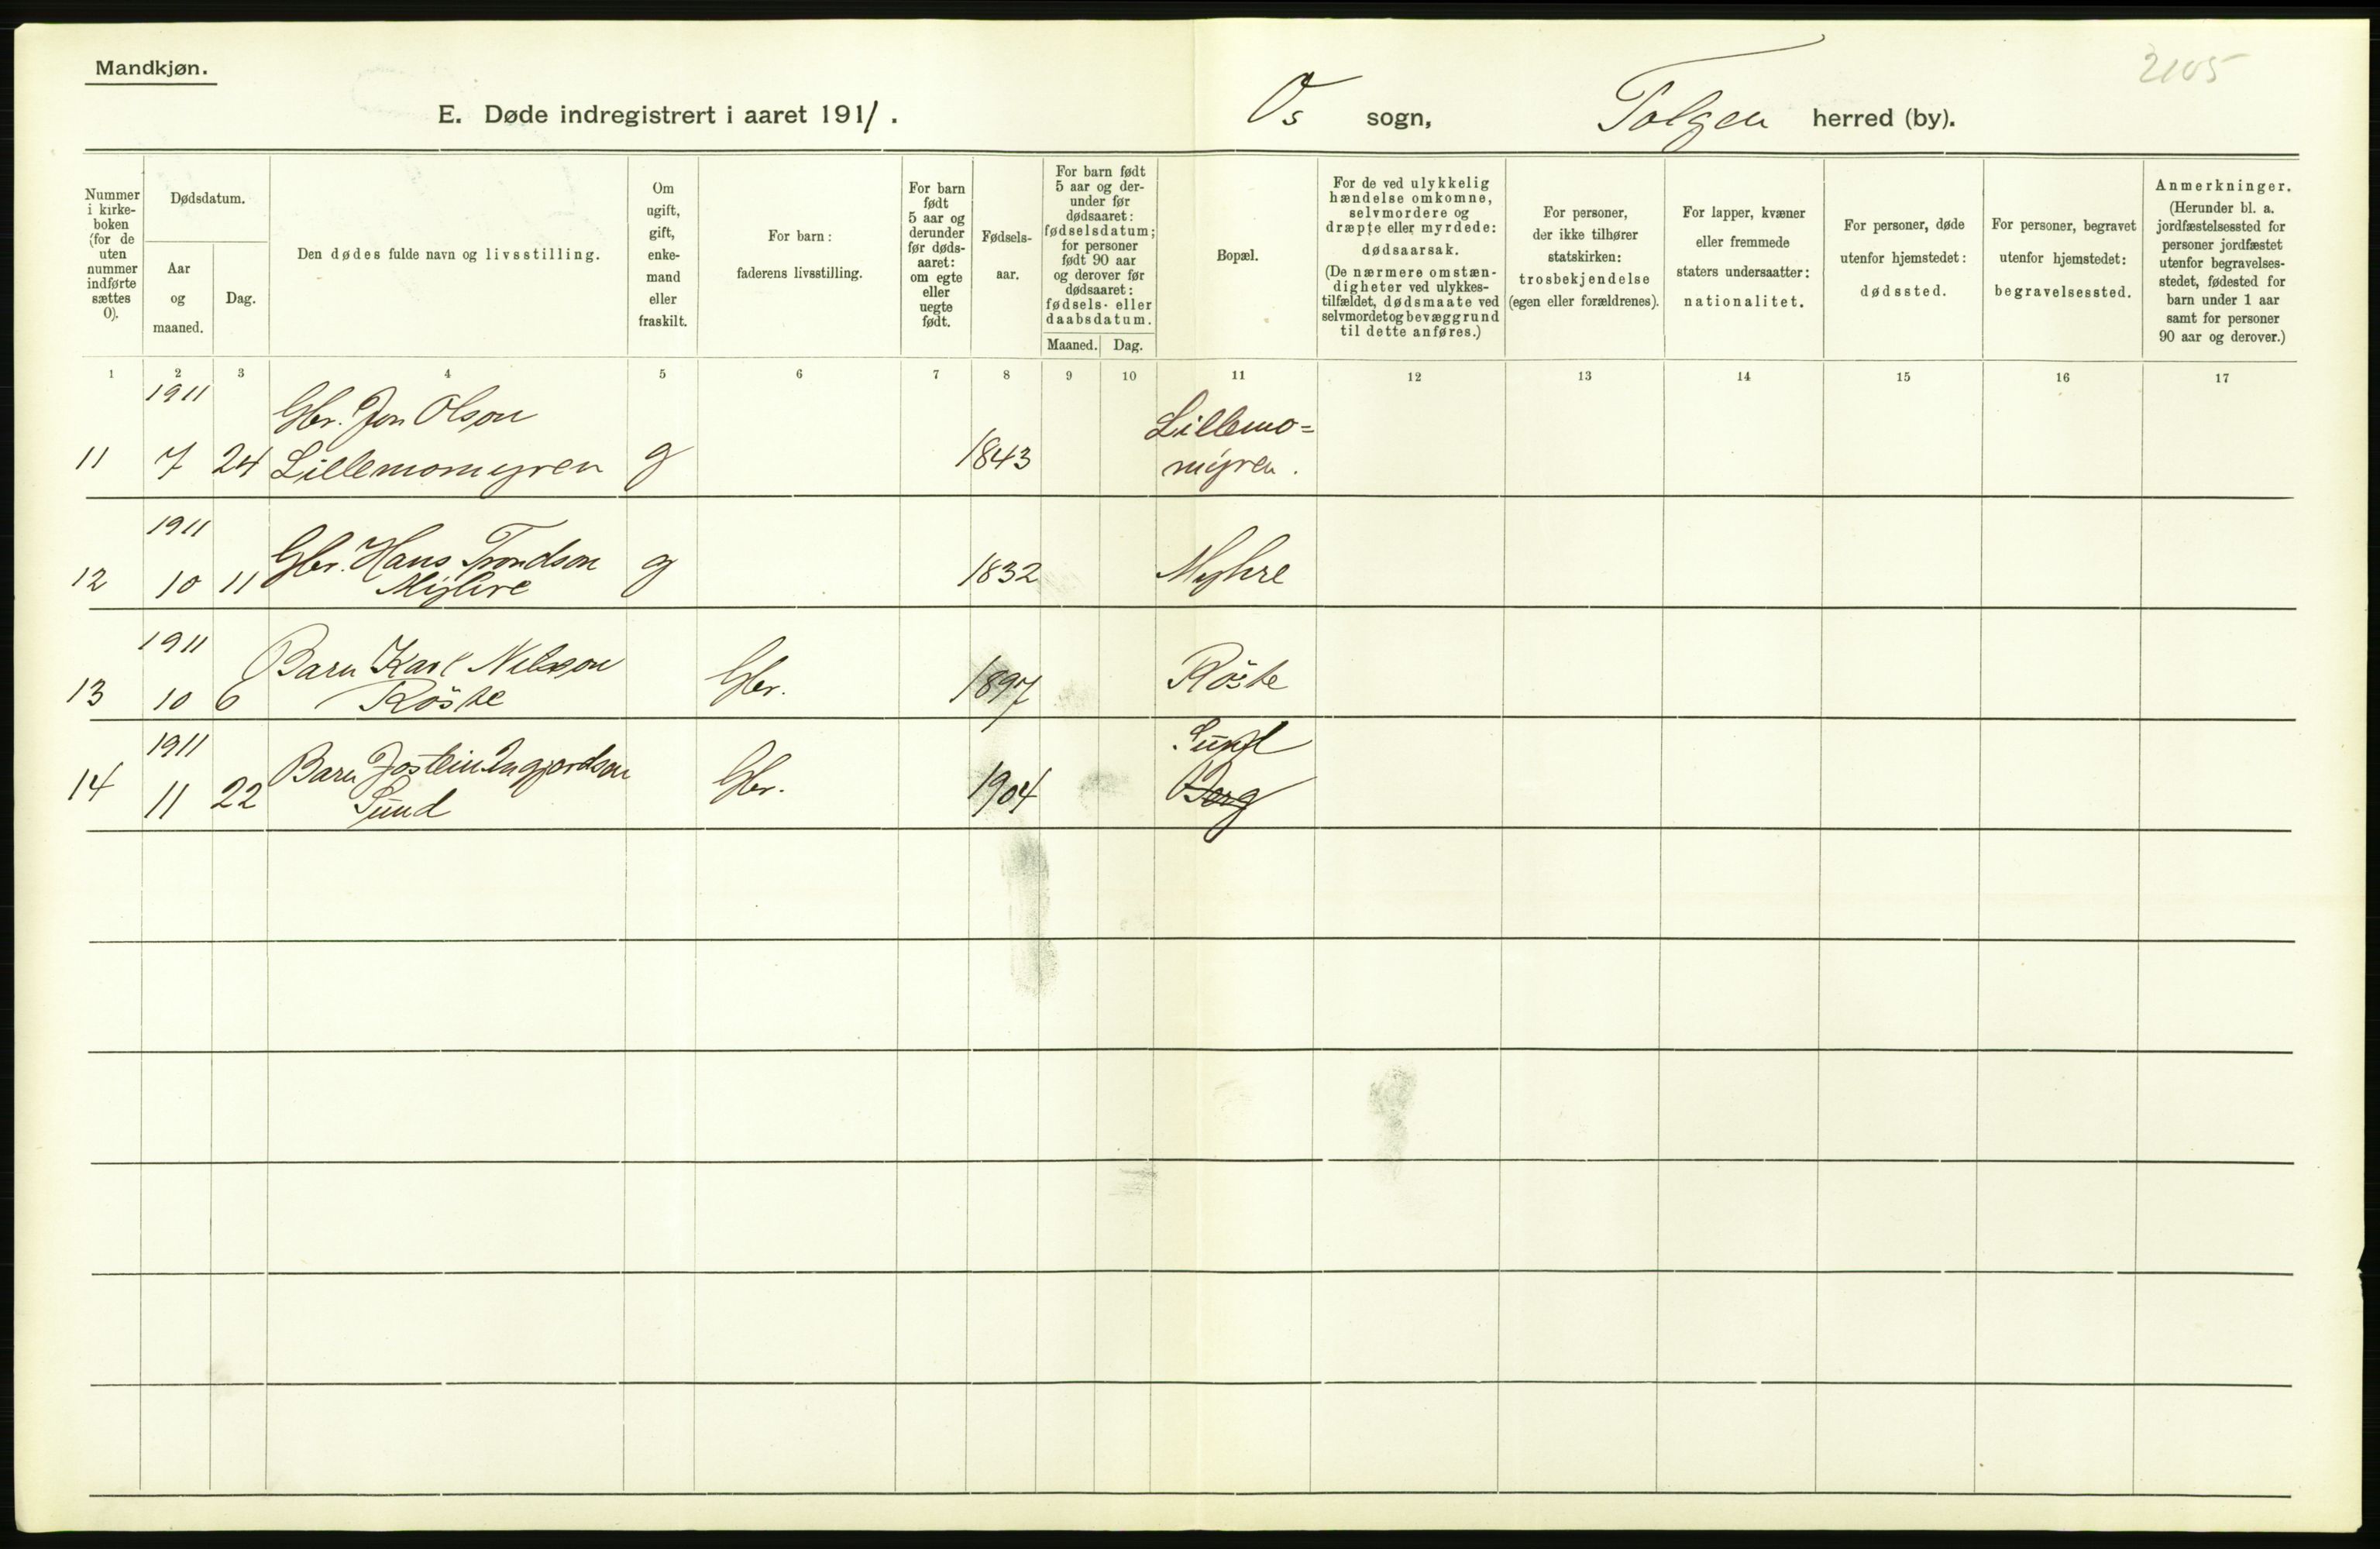 Mandkjøn.
2105
E. Døde indregistrert i aaret 1911.
Os sogn, Tolgen herred (by).
Nummer
i kirke-
boken
(for de
uten
nummer
indførte
sættes
0).
Dødsdatum.
Aar
og
maaned.
Dag.
Den dødes fulde navn og livsstilling.
Om
ugift,
gift,
enke-
mand
eller
fraskilt.
For barn:
faderens livsstilling.
For barn
født
5 aar og
derunder
før døds-
aaret:
om egte
eller
uegte
født.
Fødsels-
aar.
For barn født
5 aar og der-
under før
dødsaaret:
fødselsdatum;
for personer
født 90 aar
og derover før
dødsaaret:
fødsels- eller
daabsdatum.
Maaned. Dag.
Bopæl.
For de ved ulykkelig
hændelse omkomne,
selvmordere og
dræpte eller myrdede:
dødsaarsak.
(De nærmere omstæn-
digheter ved ulykkes-
tilfældet, dødsmaate ved
selvmordet og bevæggrund
til dette anføres.)
For personer,
der ikke tilhører
statskirken:
trosbekjendelse
(egen eller forældrenes).
For lapper, kvæner
eller fremmede
staters undersaatter:
nationalitet.
For personer, døde
utenfor hjemstedet:
dødssted.
For personer, begravet
utenfor hjemstedet:
begravelsessted.
Anmerkninger.
(Herunder bl. a.
jordfæstelsessted for
personer jordfæstet
utenfor begravelses-
stedet, fødested for
barn under 1 aar
samt for personer
90 aar og derover.)
1 2 3 4 5 6 7 8 9 10 11 12 13 14 15 16 17
1911 Gbr. Jon Olson Lillemo=
11 7 24 Lillemomyren g 1843 myren.
1911 Gbr. Hans Trondson
12 10 11 Myhre g 1832 Myhre
1911 Barn Karl Nilsson
13 10 6 Röste Gbr. 1897 Röste
1911 Barn Jostein Ingjordson Sund
14 11 22 Sund Gbr. 1904 Borg